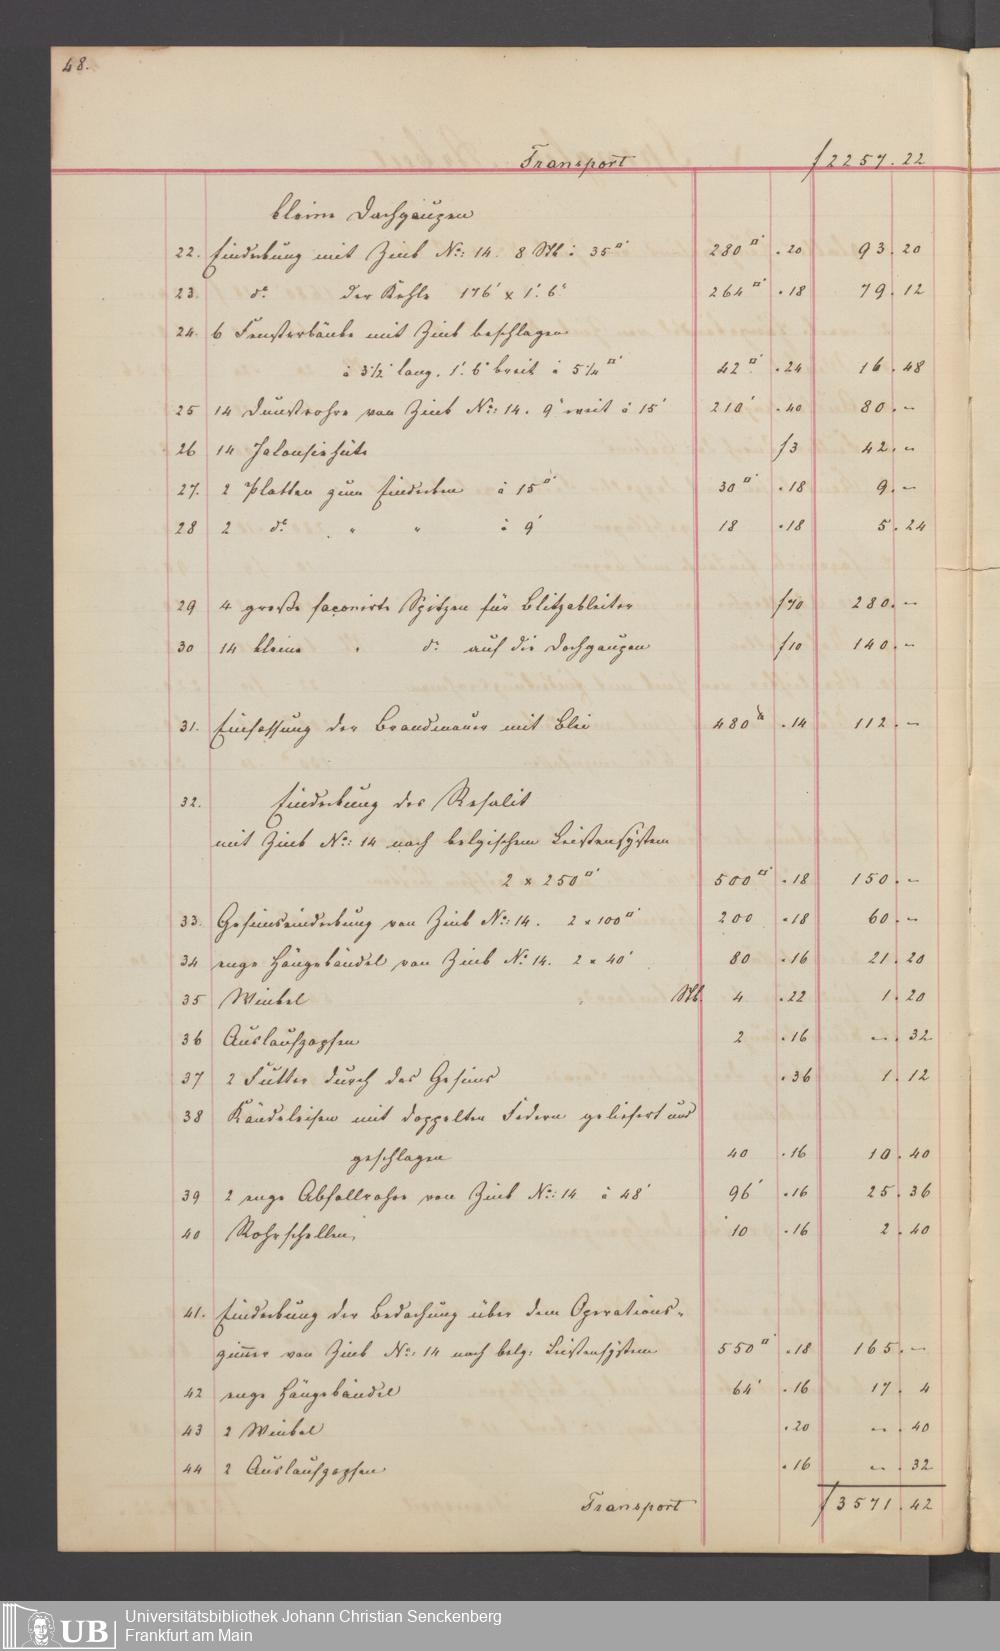 48.
Transport f 2257. 22
kleine Dachgaupen
22. Eindeckung mit Zink No: 14. 8 Stk à 35□' 280□' .20 93. 20
23 do der Kehle 176' x 1'. 6" 264□' .18 79. 12
24. 6 Fensterbänke mit Zink beschlagen
à 3 1/2' lang. 1'. 6" breit à 5 1/4□' 42□' .24 16. 48
25 14 Dunstrohre von Zink No: 14. 9" weit à 15' 210' .40 80. "
26 14 Jalousiehüte f 3 42. "
27. 2 Platten zum Eindecken à 15□' 30□' .18 9. "
28 2 do " " à 9' 18 .18 5. 24
29 4 große façonirte Spitzen für Blitzableiter f 70 280. "
30 14 kleine " do auf die Dachgaupen f 10 140. "
31. Einfassung der Brandmauer mit Blei 480 ℔ .14 112. "
32. Eindeckung des Resalit
mit Zink No: 14 nach belgischem Leistensystem
2 x 250□' 500□' .18 150. "
33. Gesimseindeckung von Zink No: 14. 2 x 100□' 200 .18 60. "
34 enge Hängekändel von Zink No 14. 2 x 40' 80 .16 21. 20
35 Winkel Stk. 4 .22 1. 20
36 Auslaufzapfen 2 .16 ". 32
37 2 Futter durch das Gesims .36 1. 12
38 Kändeleisen mit doppelten Federn geliefert und
geschlagen 40 .16 10. 40
39 2 enge Abfallrohre von Zink No: 14 à 48' 96' .16 25. 36
40 Rohrschellen 10 .16 2. 40
41. Eindeckung der Bedachung über dem Operations-
zim̅er von Zink No: 14 nach belg: Leistensystem 550□' .18 165. "
42 enge Hängekändel 64' .16 17. 4
43 2 Winkel .20 ". 40
44 2 Auslaufzapfen .16 ". 32
Transport f 3571. 42
UB
Universitätsbibliothek Johann Christian Senckenberg
Frankfurt am Main